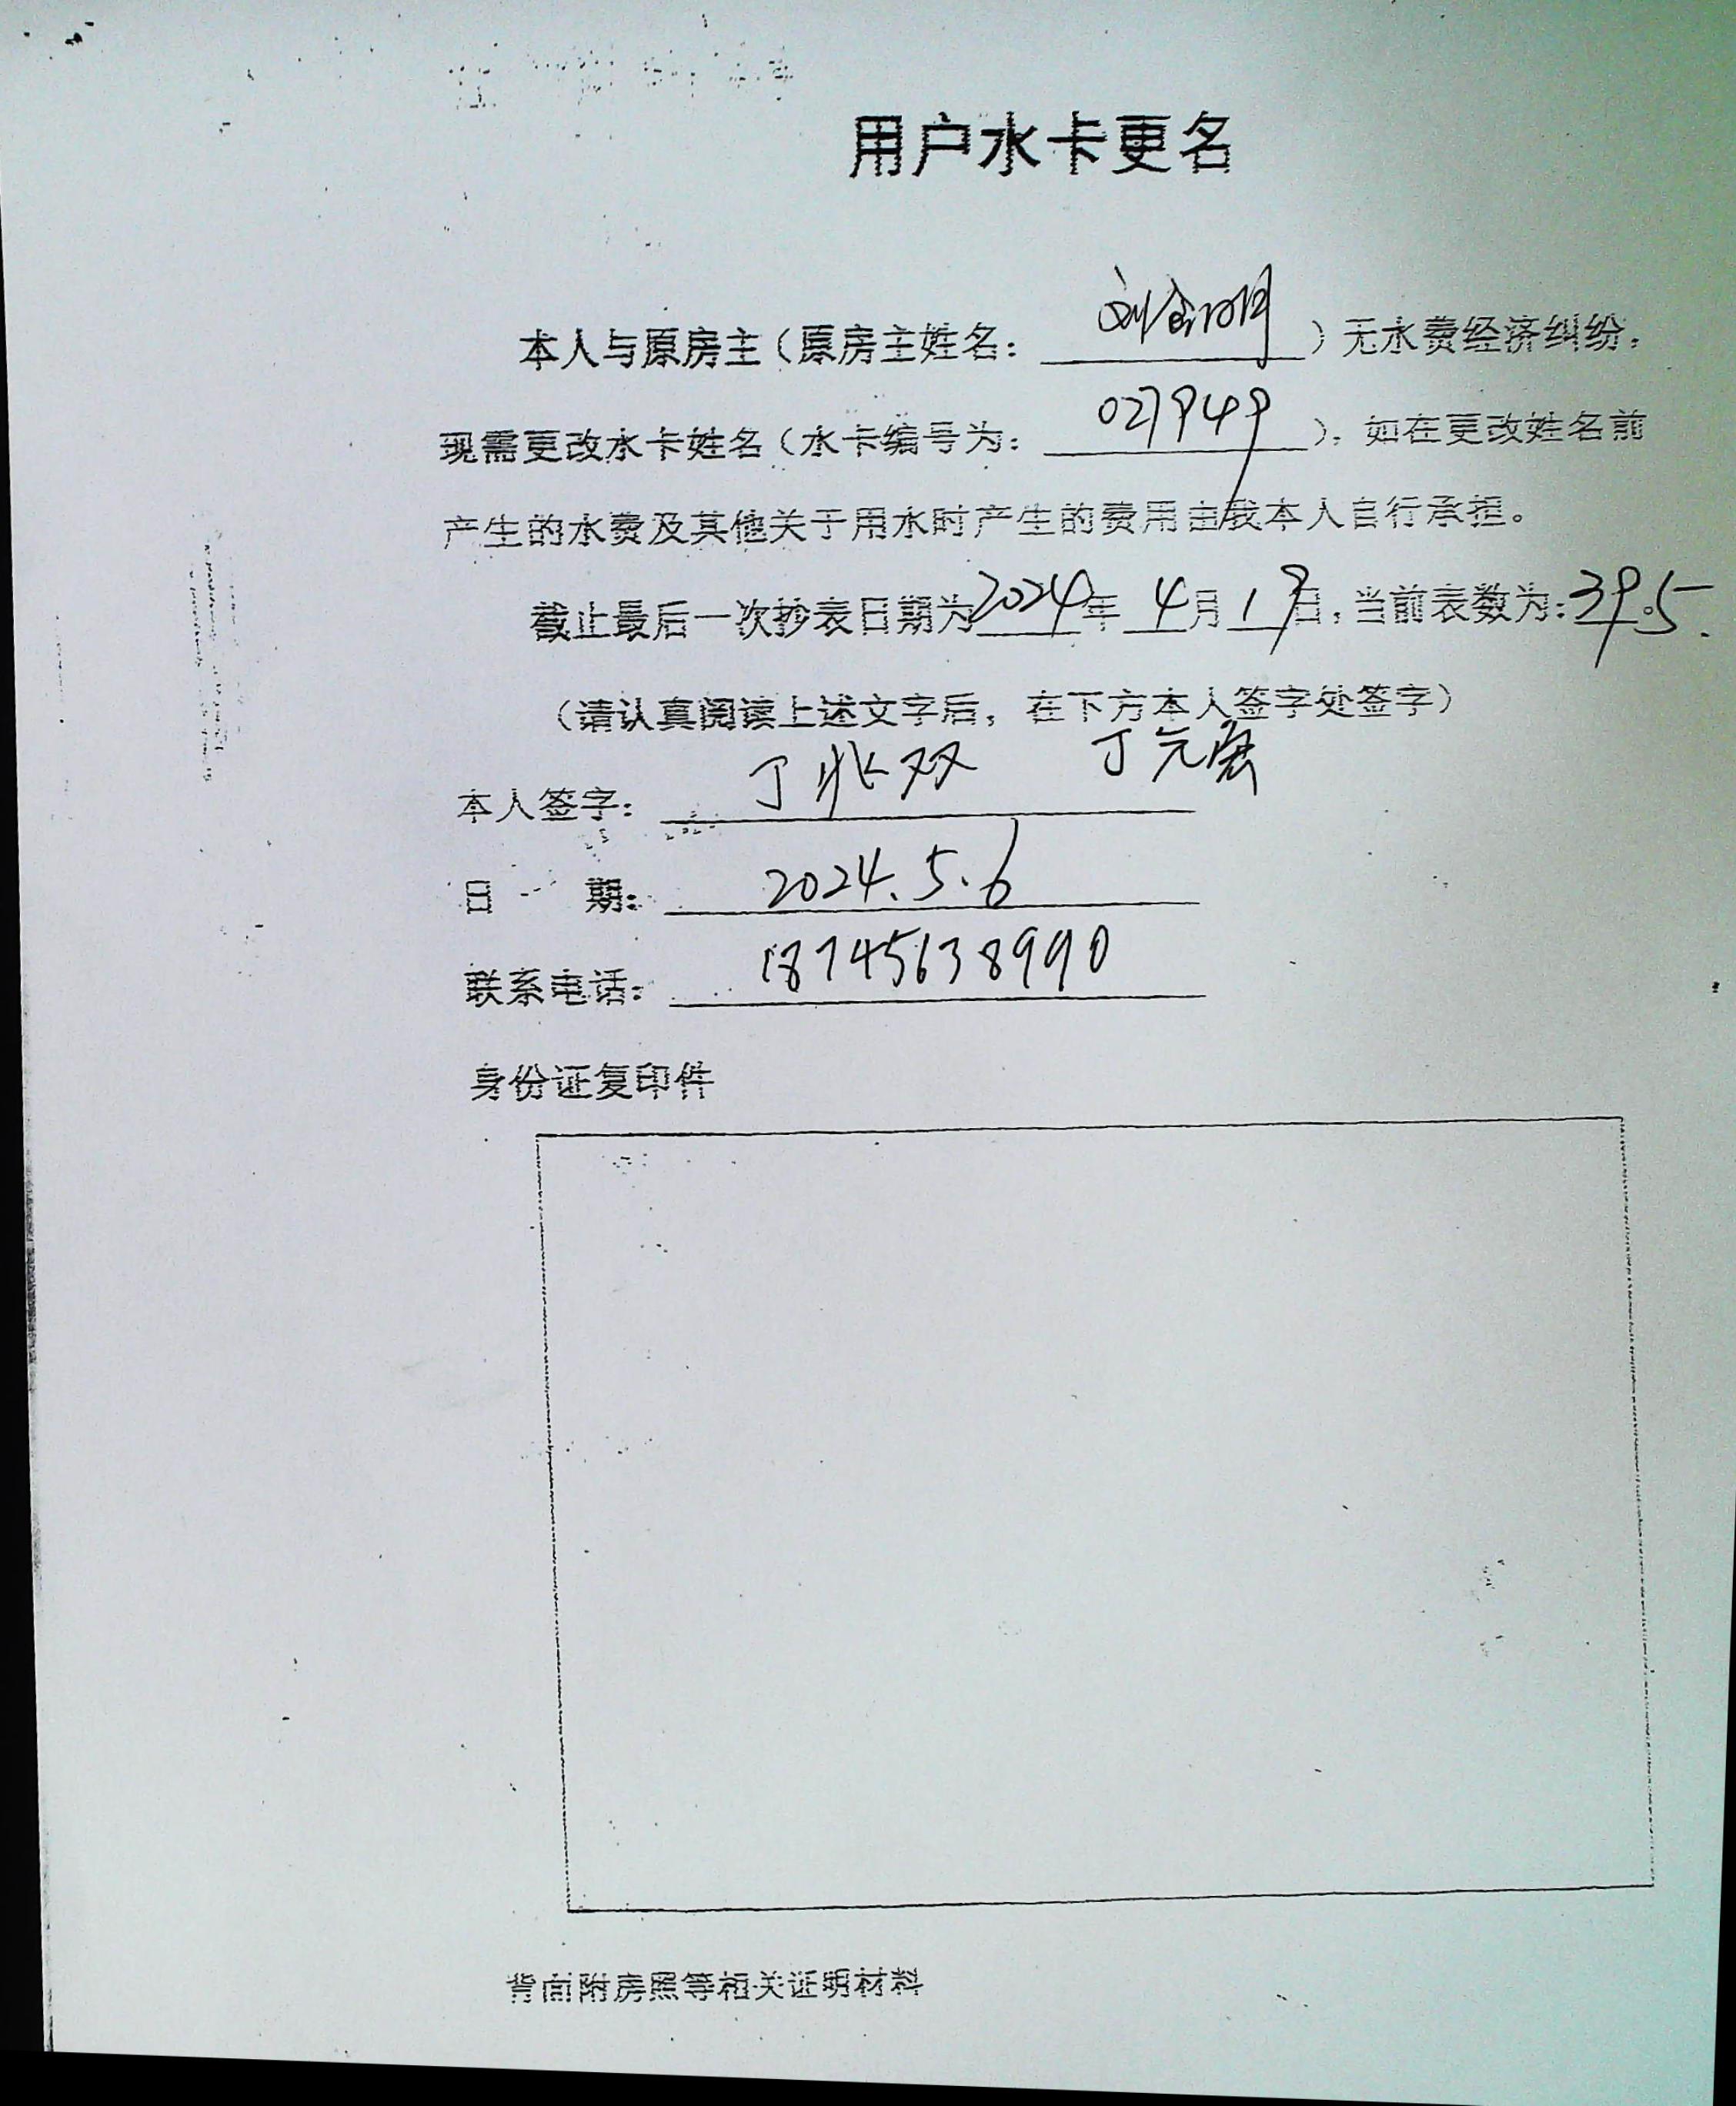 用户水卡更名
本人与原房主（原房主姓名：刘金明）无水费经济纠纷，
现需更改水卡姓名（水卡编号为：027949），如在更改姓名前
产生的水费及其他关于用水时产生的费用由我本人自行承担。
截止最后一次抄表日期为2024年4月19日，当前表数为：39.5.
（请认真阅读上述文字后，在下方本人签字处签字）
本人签字：丁兆双 丁元宏
日 期：2024.5.6
联系电话：18745638990
身份证复印件
背面附房照等相关证明材料